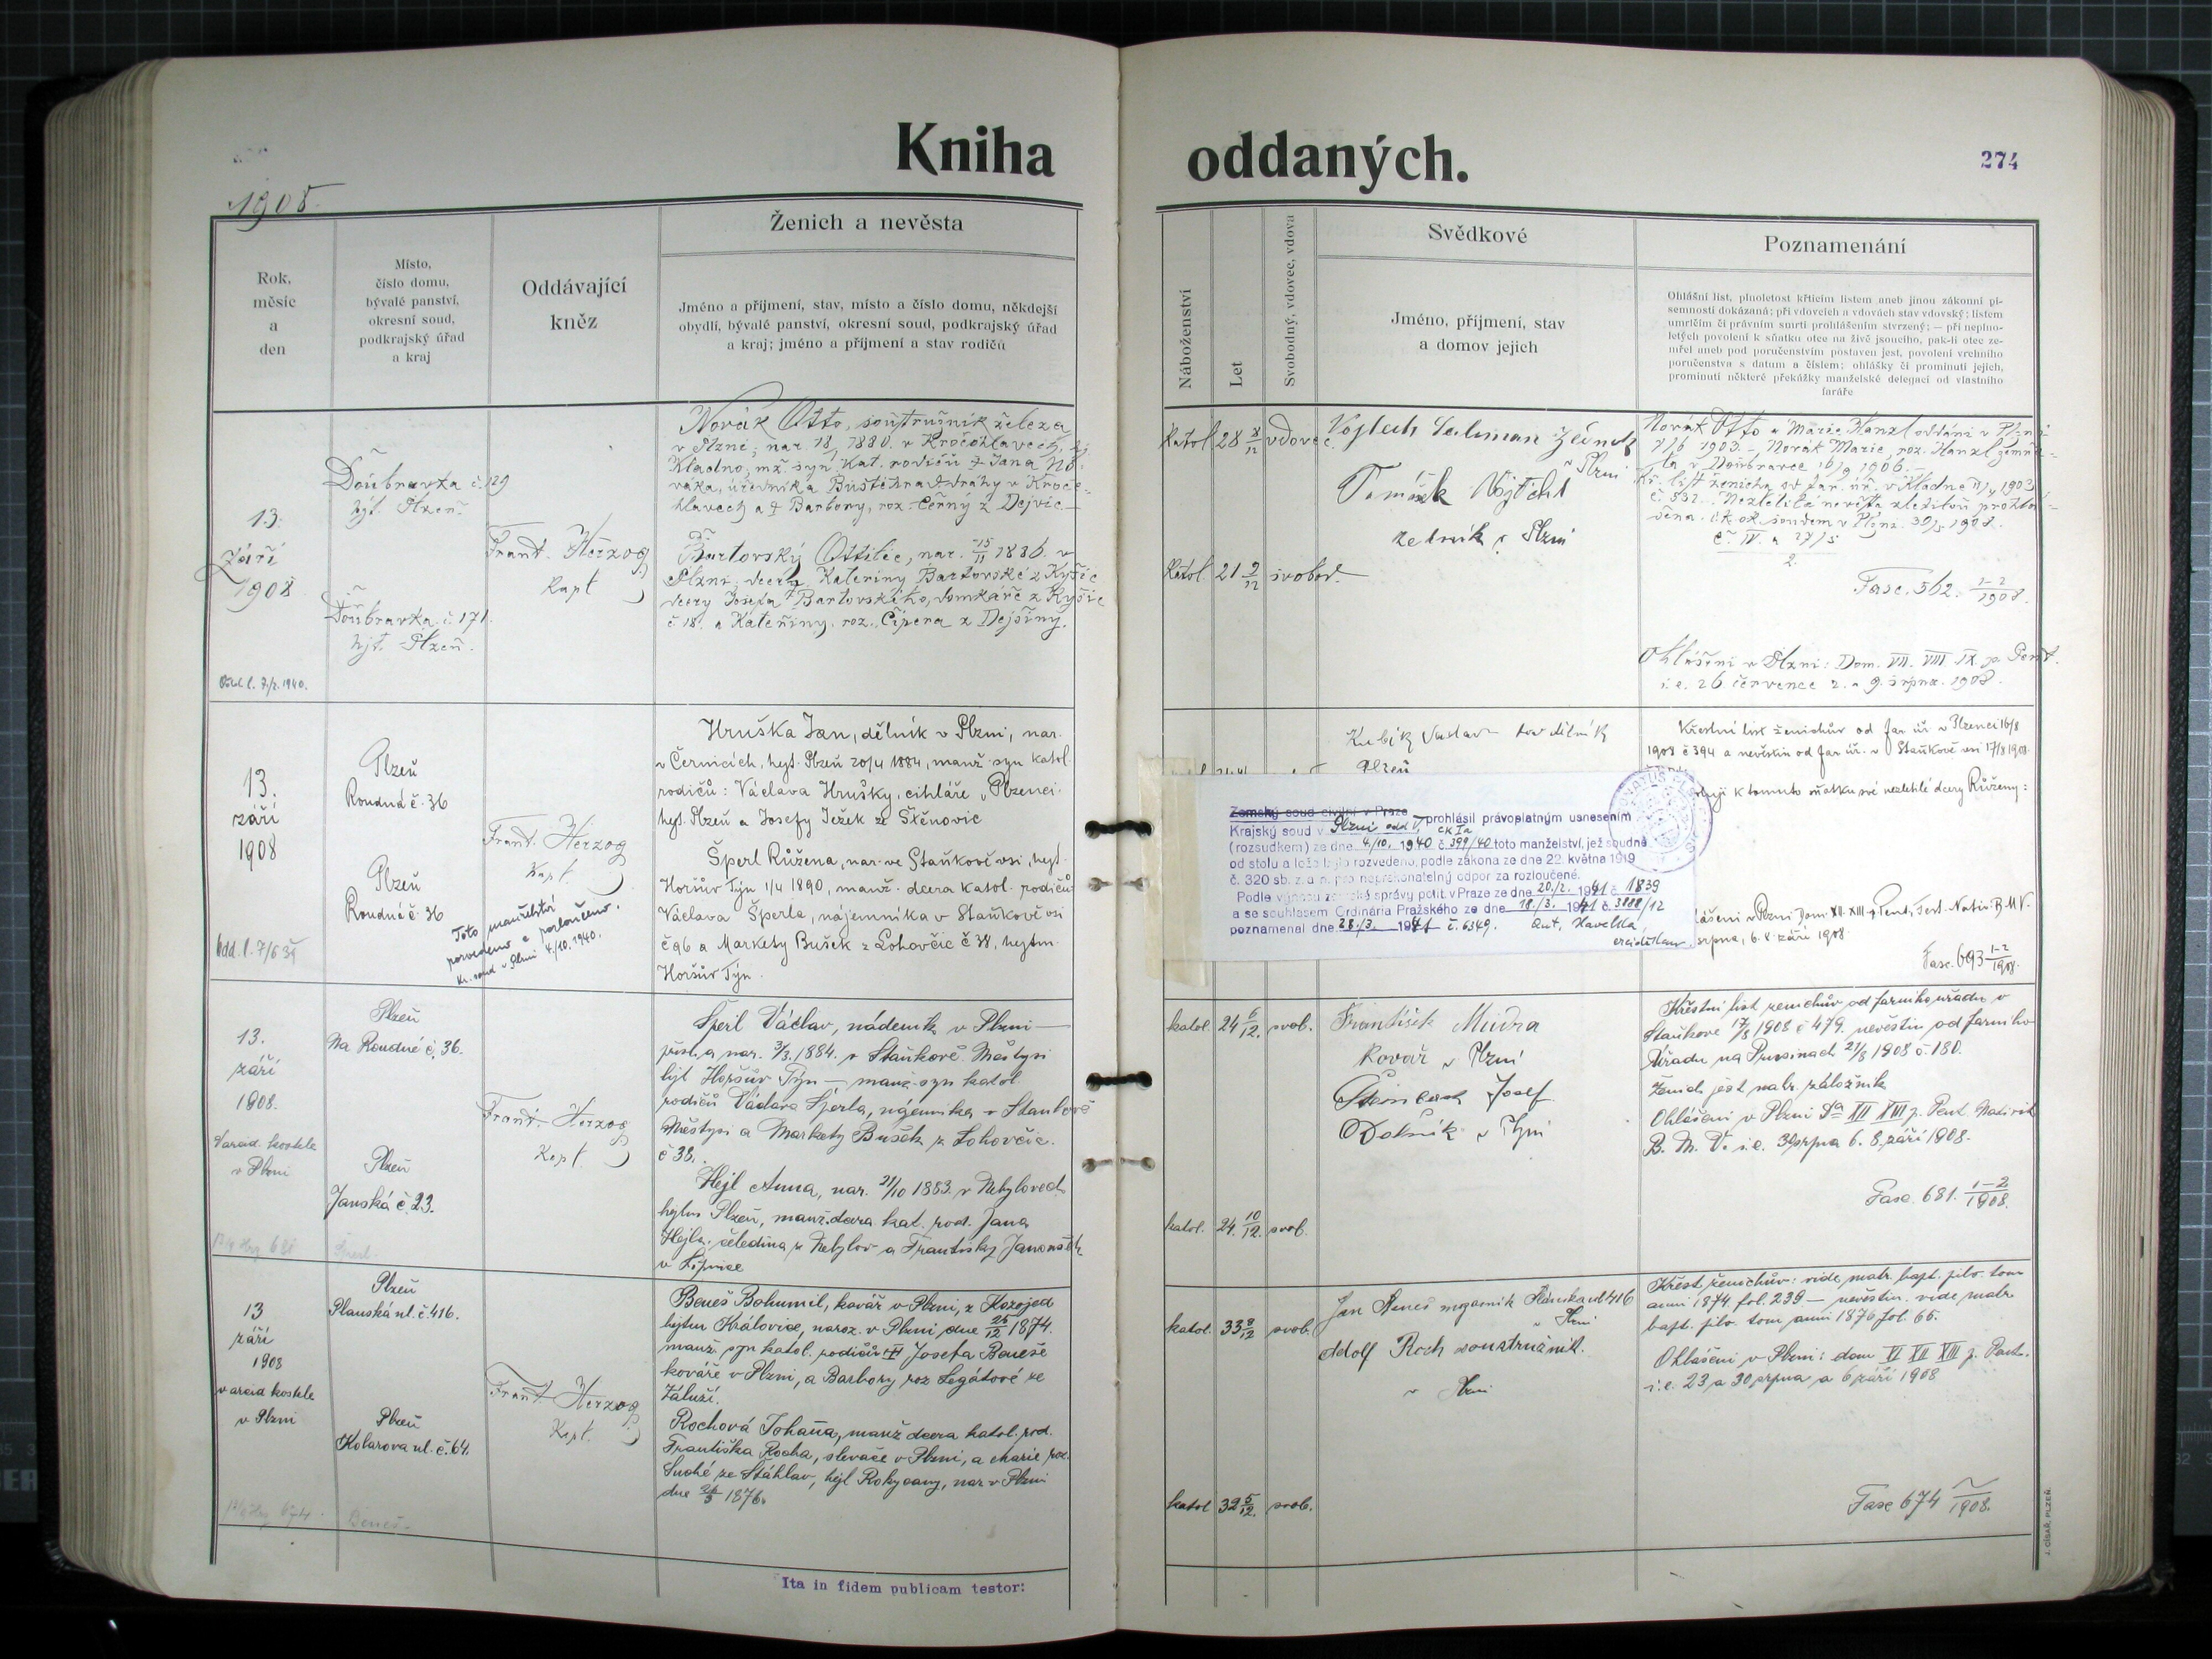 Kniha oddaných.
274
1908.
Rok,
měsíc
a
den
Místo,
číslo domu,
bývalé panství,
okresní soud,
podkrajský úřad
a kraj
Oddávající
kněz
Ženich a nevěsta
Jméno a příjmení, stav, místo a číslo domu, někdejší
obydlí, bývalé panství, okresní soud, podkrajský úřad
a kraj; jméno a příjmení a stav rodičů
Náboženství
Let
Svobodný, vdovec, vdova
Svědkové
Jméno, příjmení, stav
a domov jejich
Poznamenání
Ohlášní list, plnoletost křticím listem aneb jinou zákonní pí-
semností dokázaná; při vdovcích a vdovách stav vdovský; listem
umrlčím či právním smrti prohlášením stvrzený; — při neplno-
letých povolení k sňatku otce na živě jsoucího, pak-li otec ze-
mřel aneb pod poručenstvím postaven jest, povolení vrchního
poručenstva s datum a číslem; ohlášky či prominutí jejich,
prominutí některé překážky manželské delegací od vlastního
faráře
13.
září
1908
Doubravka č. 129
hjt. Plzeň.
Doubravka č. 171
hjt. Plzeň.
Frant. Herzog
Kapl.
Novák Otto, soustružník železa
v Plzni, nar. 1880. v Kročehlavech,
Kladno, mž. syn Kat. rodičů † Jana No-
váka, úředníka Buštěhrad. dráhy v Kroče-
hlavech a † Barbory, roz. Černý z Dejvic.
Bartovský Ottilie, nar. 15/11 1886. v
Plzni, dcera Kateřiny Bartovské z Kyšic
dcery Josefa † Bartovského, domkáře z Kyšic
č. 18. a Kateřiny, roz. Cipera z Dejšiny.
Katol. 28 vdovec
Vojtech
v Plzni
Vojtěch
zedník v Plzni
Katol. 21 svobod.
Novák Otto a Marie Hanzl oddáni v Plzni
1903. Novák Marie, roz. Hanzl zemře-
la v Doubravce 1906.
Fasc. 562. 1-2/1908.
Ohlášeni v Plzni: Dom. VII. VIII. IX. p. Pent.
i. e. 26 července 2. a 9. srpna. 1908.
13.
září
1908
Plzeň
Roudná č. 36
Plzeň
Roudná č. 36
Frant. Herzog
Kapl.
Toto manželství
rozvedeno a rozloučeno.
Kr. soud v Plzni 4/10. 1940.
Hruška Jan, dělník v Plzni, nar.
v Černicích, hejt. Plzeň 20/4 1884, manž. syn katol.
rodičů: Václava Hrušky, cihláře v Plzenci
hejt. Plzeň a Josefy Ježek ze Štěnovic
Šperl Růžena, nar. ve Staňkově vsi, hejt.
Horšův Týn 1/4 1890, manž. dcera katol. rodičů
Václava Šperla, nájemníka v Staňkově vsi
č 96 a Markety Bušek z Lohovčic č 38, hejtm.
Horšův Týn.
Kubík Václav
Plzeň
Křestní list ženichův od far. úř. v Plzenci 16/8
1908 č 394 a nevěstin od far. úř. v Staňkově vsi 17/8 1908.
k tomuto sňatku své nezletilé dcery Růženy:
Zemský soud civilní v Praze
Krajský soud v Plzni odd V, prohlásil právoplatným usnesením
(rozsudkem) ze dne 4/10. 1940 č. 399/40 toto manželství, jež soudně
od stolu a lože bylo rozvedeno, podle zákona ze dne 22. května 1919
č. 320 sb. z. a n. pro nepřekonatelný odpor za rozloučené.
Podle výnosu zemské správy polit. v Praze ze dne 20./2. 1941 č. 1839
a se souhlasem Ordinária Pražského ze dne 18./3. 1941 č. 3888/12
poznamenal dne 28./3. 1941 č. 6349. Ant. Havelka
v Plzni Dom. XII. XIII p. Pent., Fest. Nativ. B M V.
srpna, 6. 8. září 1908.
Fasc. 693 1-2/1908.
13.
září
1908.
v arcid. kostele
v Plzni
Plzeň
Na Roudné č. 36.
Plzeň
Janská č. 23.
Frant. Herzog
Kapl.
Šperl Václav, nádeník v Plzni
přísl. a nar. 3/3. 1884. v Staňkově Městysi
hjt Horšův Týn — manž. syn katol.
rodičů Václava Šperla, nájemníka v Staňkově
Městysi a Markety Bušek z Lohovčic.
č 38.
Hejl Anna, nar. 21/10 1883. v Nebylovech
hejtm Plzeň, manž. dcera kat. rod. Jana
Hejla, čeledína z Nebylov a Františky
v Lipnice
katol. 24 6/12. svob.
František Mudra
Kovář v Plzni
Josef
v Plzni
katol. 24. 10/12. svob.
Křestní list ženichův od farního úřadu v
Staňkově 17/8 1908 č 479. nevěstin od farního
Úřadu na Prusinách 21/8 1908 č. 180.
Ženich jest nahr. záložník
Ohlášeni v Plzni Da XII XIII p. Pent. Nativit
B. M. V. i. e. 30 srpna 6. 8. září 1908.
Fasc. 681. 1-2/1908.
13
září
1908
v arcid kostele
v Plzni
Plzeň
Planská ul. č. 416.
Plzeň
Kolarova ul. č. 64.
Frant. Herzog
Kapl.
Beneš Bohumil, kovář v Plzni, z Kozojed
hejtm Kralovice, naroz. v Plzni dne 25/12 1874.
manž. syn katol. rodičů † Josefa Beneše
kováře v Plzni, a Barbory roz Legátové ze
Záluží.
Rochová Johana, manž dcera katol. rod.
Františka Rocha, slevače v Plzni, a Marie roz.
Suché ze Stáhlav, hejt Rokycany, nar v Plzni
dne 26/3 1876.
Beneš.
katol. 33 8/12 svob.
Jan Beneš
v Plzni
Adolf Roch soustružník.
v Plzni
katol 32 5/12. svob.
Křest. ženichův: vide matr. bapt. pilv. tom
anni 1874. fol. 239 — nevěstin. vide matr
bapt. pilv. tom anni 1876 fol. 65.
Ohlášeni v Plzni: dom XI XII XIII p. Pent.
i. e. 23 a 30 srpna a 6 září 1908
Fasc 674 1908.
Ita in fidem publicam testor:
J. CÍSAŘ, PLZEŇ.